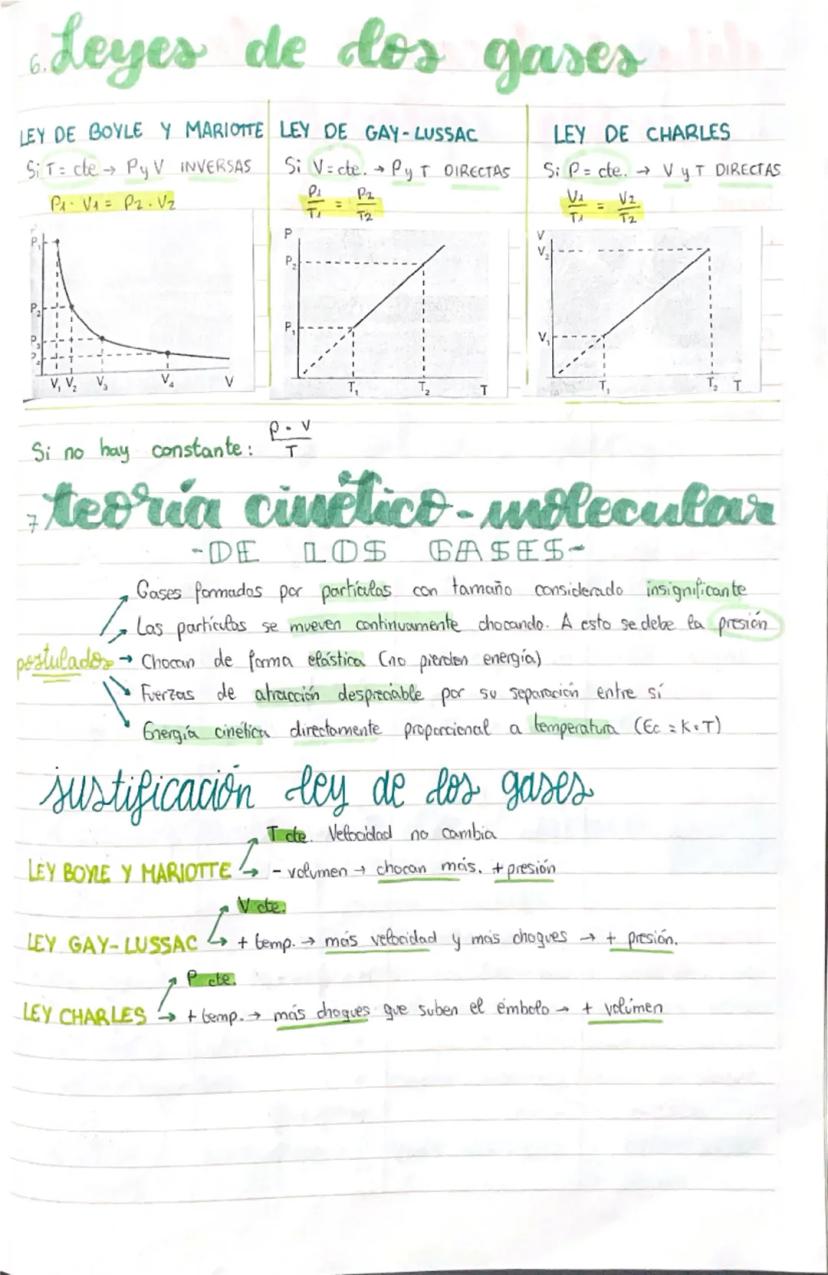 6. Leyes de los gases
LEY DE BOYLE Y MARIOTTE
Si T = cte → P y V INVERSAS
P₁ · V₁ = P₂ · V₂
P₁
P₂
P₃
P₄
V₁ V₂ V₃ V₄ V
LEY DE GAY-LUSSAC
Si V = cte. → P y T DIRECTAS
P₁/T₁ = P₂/T₂
P
P₂
P₁
T₁ T₂ T
LEY DE CHARLES
Si P = cte. → V y T DIRECTAS
V₁/T₁ = V₂/T₂
V
V₂
V₁
T₁ T₂ T
Si no hay constante: P · V / T
7 teoría cinético-molecular
-DE LOS GASES-
postulados
Gases formados por partículas con tamaño considerado insignificante
Las partículas se mueven continuamente chocando. A esto se debe la presión
→ Chocan de forma elástica (no pierden energía)
Fuerzas de atracción despreciable por su separación entre sí
Energía cinética directamente proporcional a temperatura (Ec = K · T)
justificación ley de los gases
T cte. Velocidad no cambia
LEY BOYLE Y MARIOTTE → - volumen → chocan más. + presión
V cte.
LEY GAY-LUSSAC → + temp. → más velocidad y más choques → + presión.
P cte.
LEY CHARLES → + temp. → más choques que suben el émbolo → + volúmen